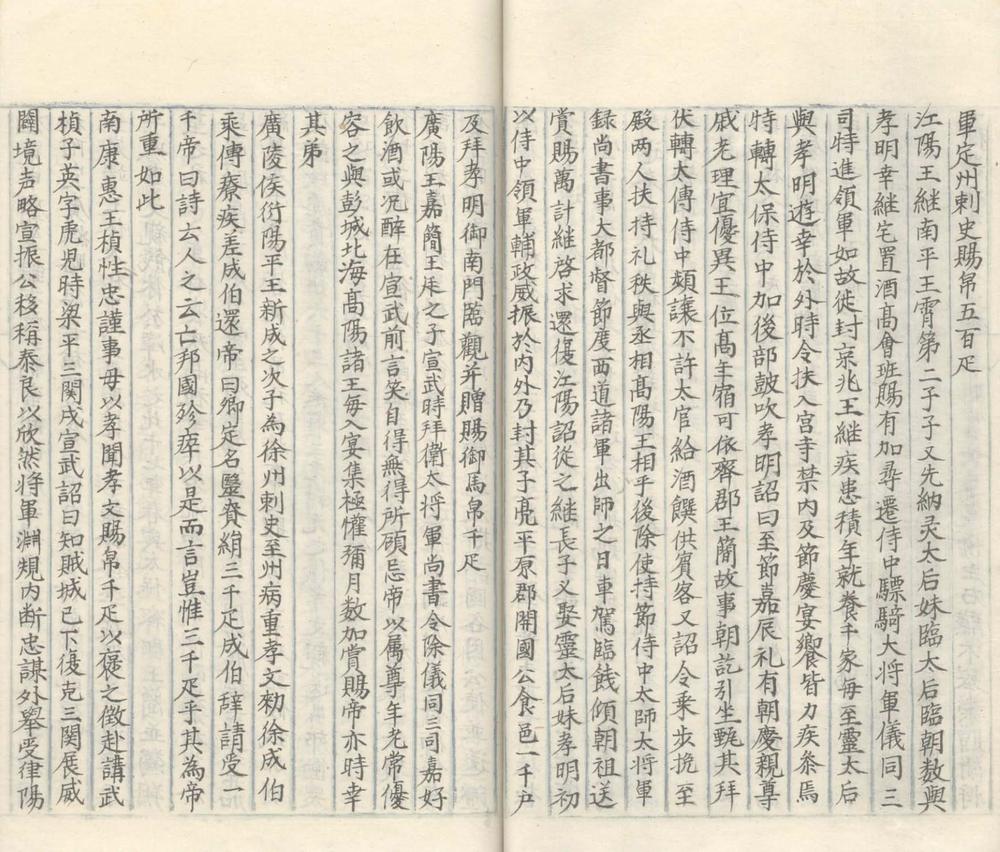 軍定州刺史賜帛五百疋
江陽王継南平王霄第二子子又先納灵太后妹臨太后臨朝数與
孝明幸継宅置酒髙會班賜有加尋遷侍中驃騎大将軍儀同三
司特進領軍如故徙封京兆王継疾患積年就養千家每至靈太后
與孝明遊幸於外時令扶入宫寺禁内及節慶宴饗皆力疾叅焉
特轉太保侍中加後部鼓吹孝明詔曰至節嘉辰礼有朝慶親尊
戚老理宜優異王位髙年宿可依齊郡王簡故事朝訖引坐甄其拜
伏轉太傅侍中頻讓不許太官給酒饌供賓客又詔令乘步挽至
殿两人扶持礼秩與丞相髙陽王相乎後除使持節侍中太師太将軍
録尚書事大都督節度西道諸軍出師之日車駕臨餞傾朝祖送
賞賜萬計継啓求還復江陽詔從之継長子义娶靈太后妹孝明初
以侍中領軍輔政威振於内外乃封其子亮平原郡開國公食邑一千户
及拜孝明御南門臨觀并贈賜御馬帛千疋
廣陽王嘉簡王㡳之子宣武時拜衛太将軍尚書令除儀同三司嘉好
飲酒或况醉在宣武前言笑自得無得所頋忌帝以属尊年老常優
容之與彭城北海髙陽諸王每入宴集極懽彌月数加賞賜帝亦時幸
其弟
廣陵侯衍陽平王新成之次子為徐州刺史至州病重孝文勑徐成伯
乘傳療疾差成伯還帝曰卿定名醫賚絹三千疋成伯辞請受一
千帝曰詩云人之云亡邦國殄瘁以是而言豈惟三千疋乎其為帝
所重如此
南康惠王楨性忠謹事母以孝聞孝文賜帛千疋以褒之徴赴講武
楨子英字虎児時梁平三関戍宣武詔曰知賊城已下復克三関展威
闢境声略宣振公移稱泰良以欣然将軍淵規内断忠謀外舉受律陽